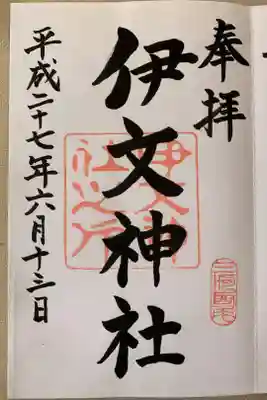 奉拝
伊文神社
平成二十七年六月十三日
伊文神社之印